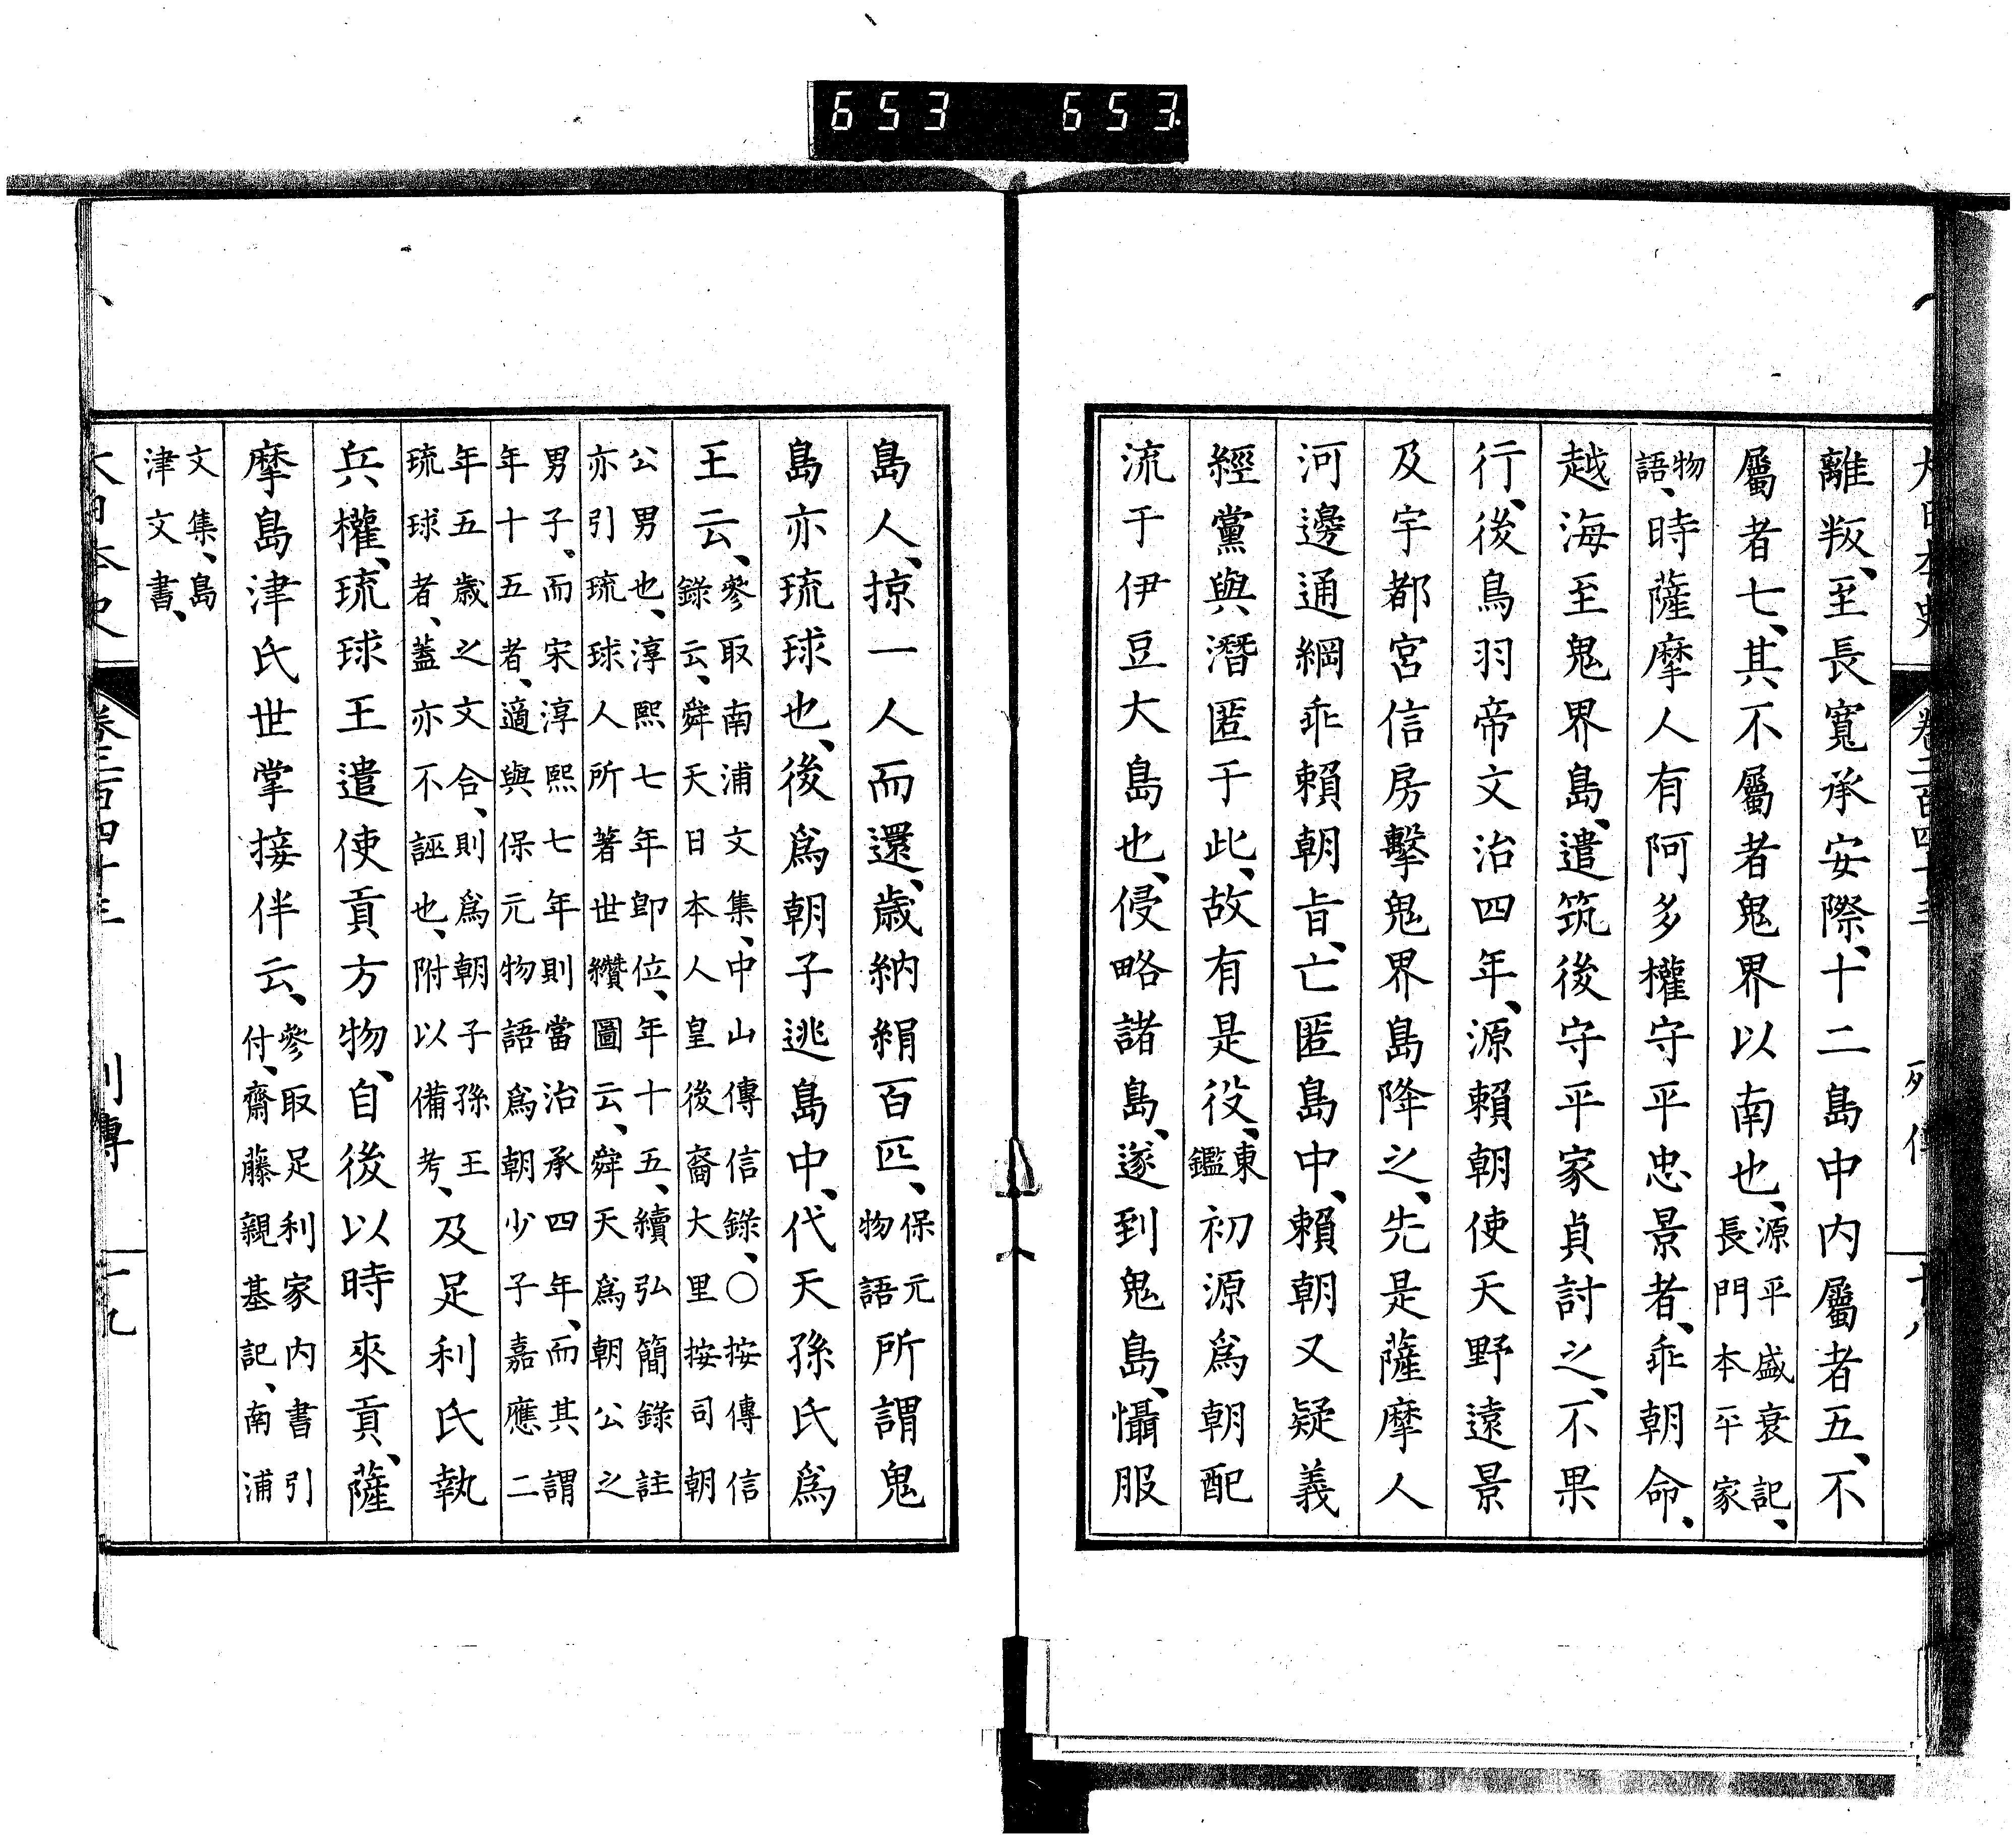 653 653
離叛、至長寬承安際、十二島中内屬者五、不
屬者七、其不屬者鬼界以南也、源平盛衰記、長門本平家
物語、時薩摩人有阿多權守平忠景者、乖朝命、
越海至鬼界島、遣筑後守平家貞討之、不果
行、後鳥羽帝文治四年、源賴朝使天野遠景
及宇都宮信房擊鬼界島降之、先是薩摩人
河邊通綱乖賴朝旨、亡匿島中、賴朝又疑義
經黨與潛匿于此、故有是役、東鑑初源爲朝配
流于伊豆大島也、侵略諸島、遂到鬼島、懾服
島人、掠一人而還、歲納絹百匹、保元物語所謂鬼
島亦琉球也、後爲朝子逃島中、代天孫氏爲
王云、參取南浦文集、中山傳信錄、○按傳信錄云、舜天日本人皇後裔大里按司朝
公男也、淳熙七年卽位、年十五、續弘簡錄註亦引琉球人所著世纘圖云、舜天爲朝公之
男子、而宋淳熙七年則當治承四年、而其謂年十五者、適與保元物語爲朝少子嘉應二
年五歲之文合、則爲朝子孫王琉球者、蓋亦不誣也、附以備考、及足利氏執
兵權、琉球王遣使貢方物、自後以時來貢、薩
摩島津氏世掌接伴云、參取足利家内書引付、齋藤親基記、南浦
文集、島津文書、
大日本史 卷二百四十三 列傳 十九